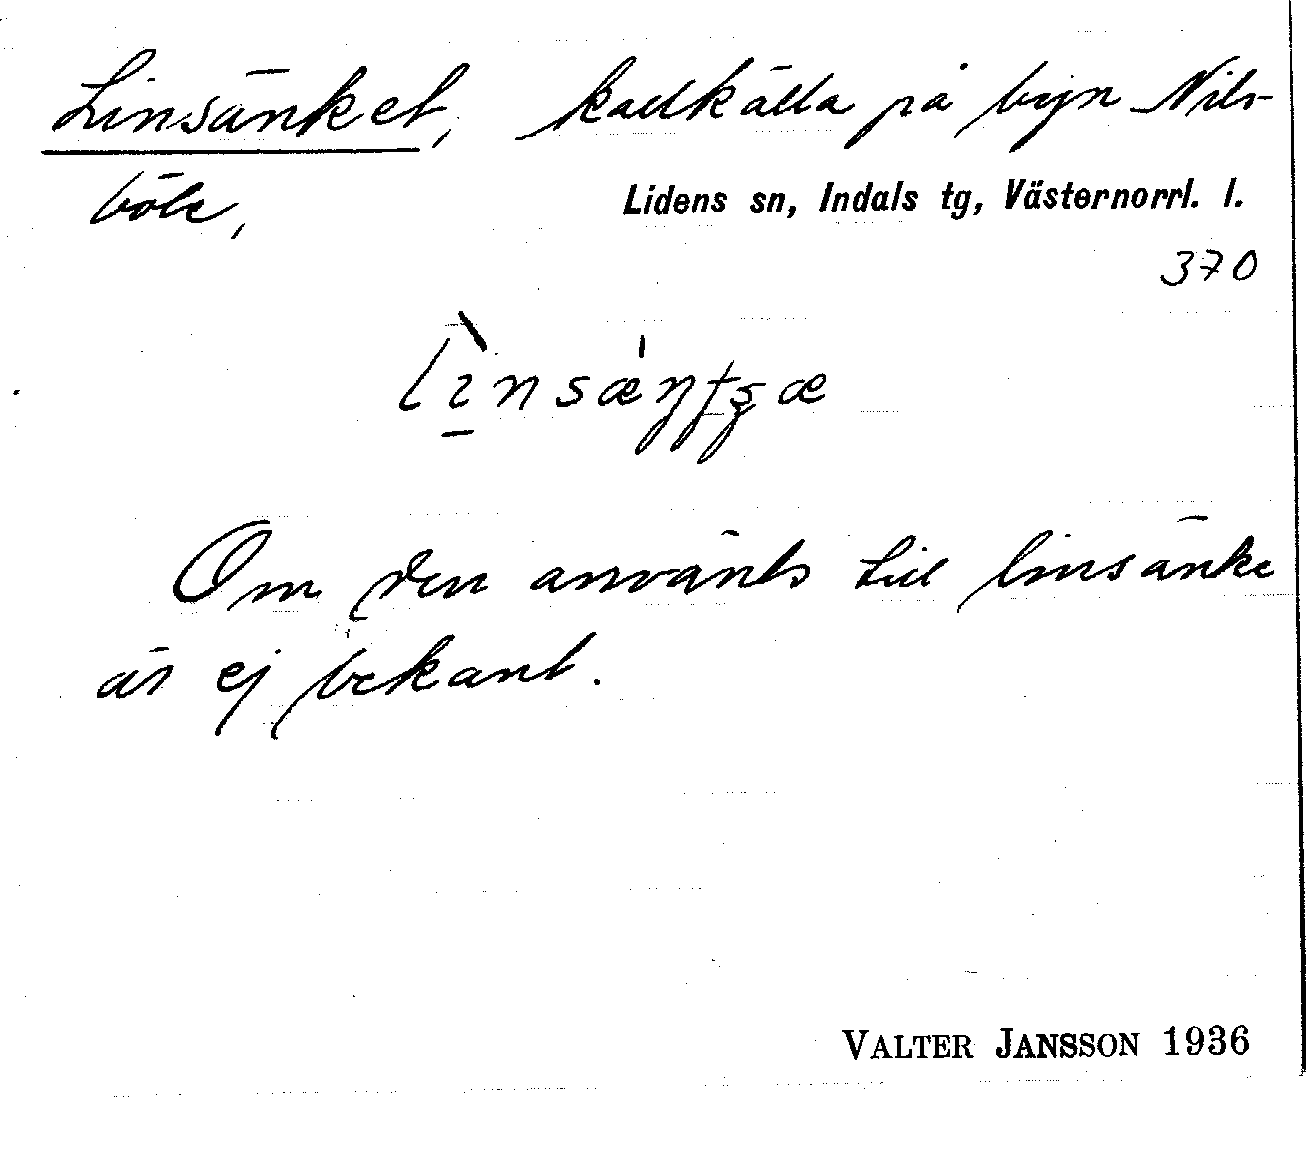 Linsänket, kallkälla på byn Nils-
böle,
Lidens sn, Indals tg, Västernorrl. l.
370
Om den använts till linsänke
är ej bekant.
VALTER JANSSON 1936